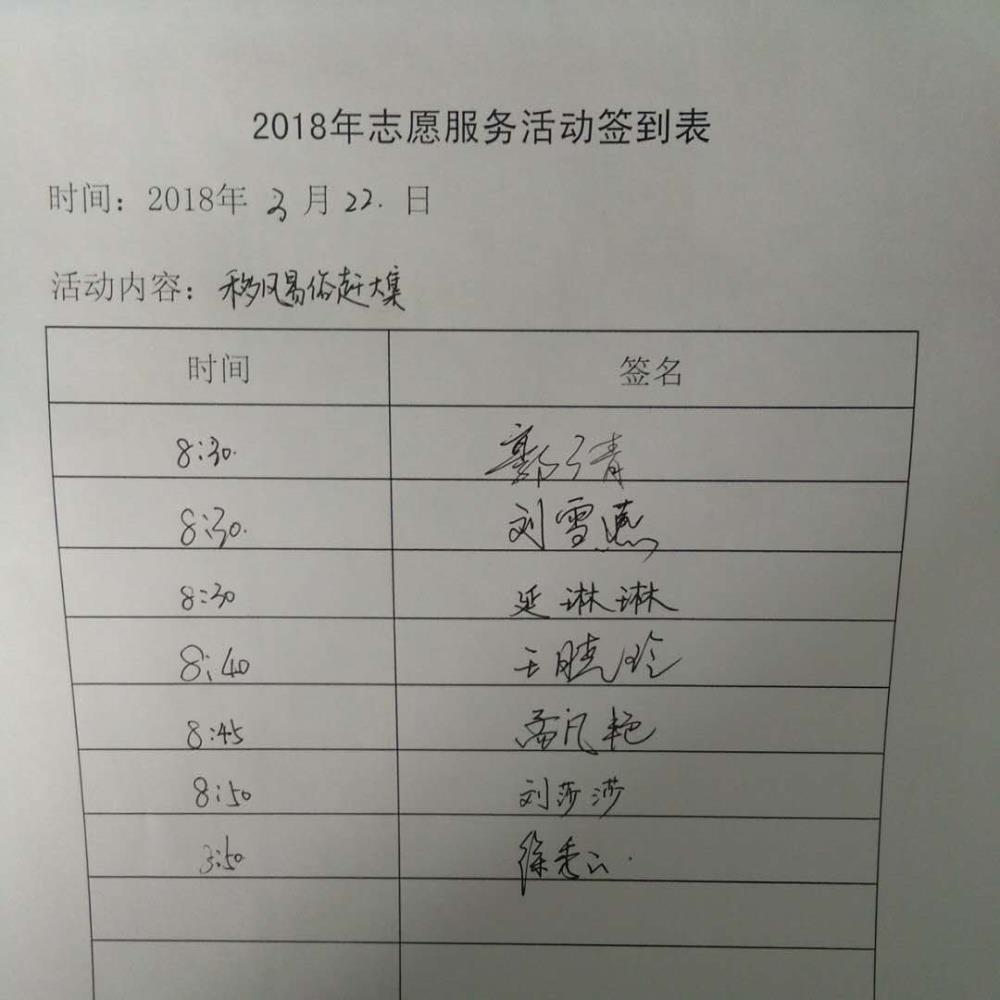 2018年志愿服务活动签到表
时间：2018年 3 月 22. 日
活动内容：移风易俗赶大集
时间 签名
8:30. 郭青
8:30. 刘雪燕
8:30 延琳琳
8:40 王晓玲
8:45 孟凡艳
8:50 刘莎莎
3:50 徐秀云.